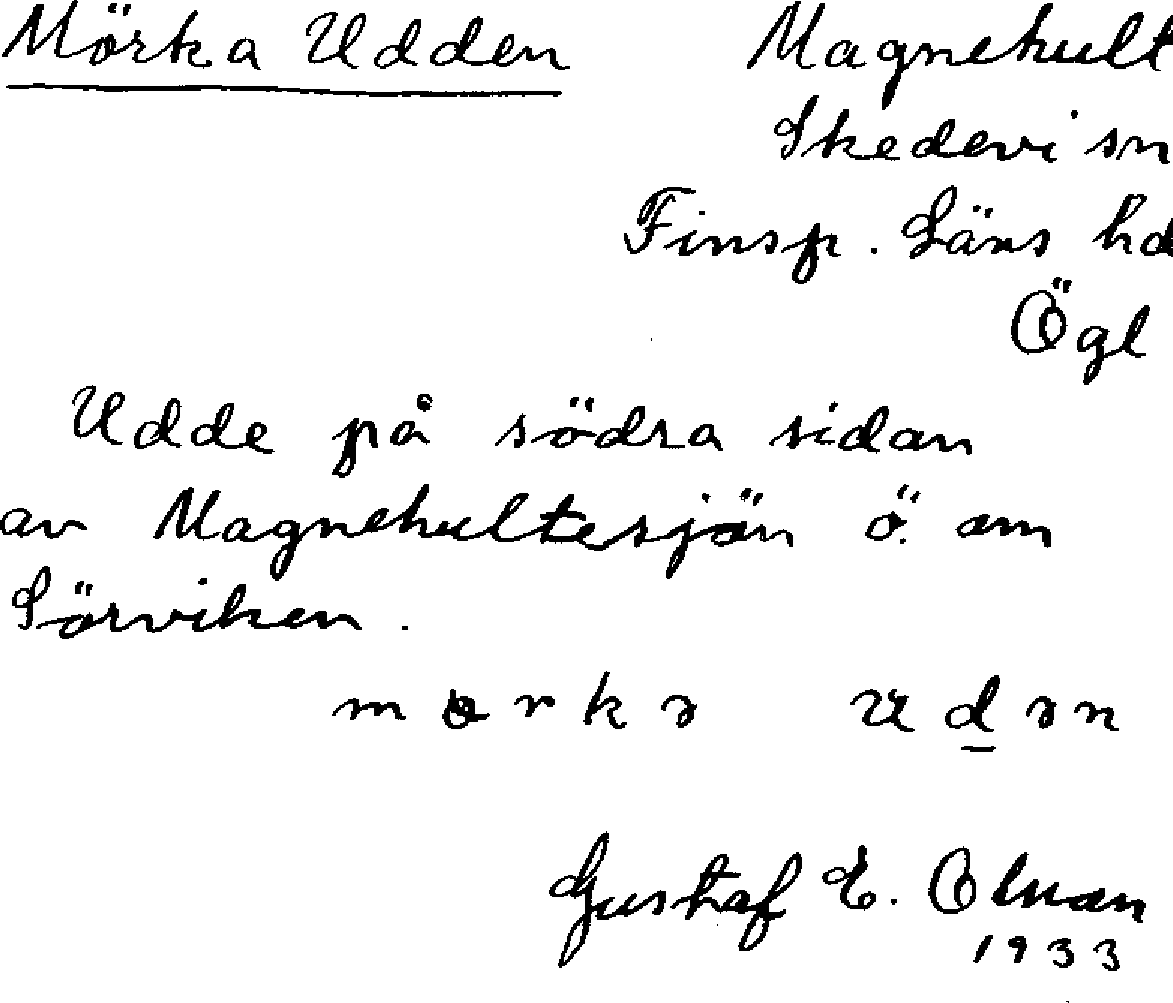 Mörka Udden Magnehult
Skedevi sn
Finsp. Läns hd
Ögl
Udde på södra sidan
av Magnehultesjön ö. om
Sörviken.
Gustaf E.
1933